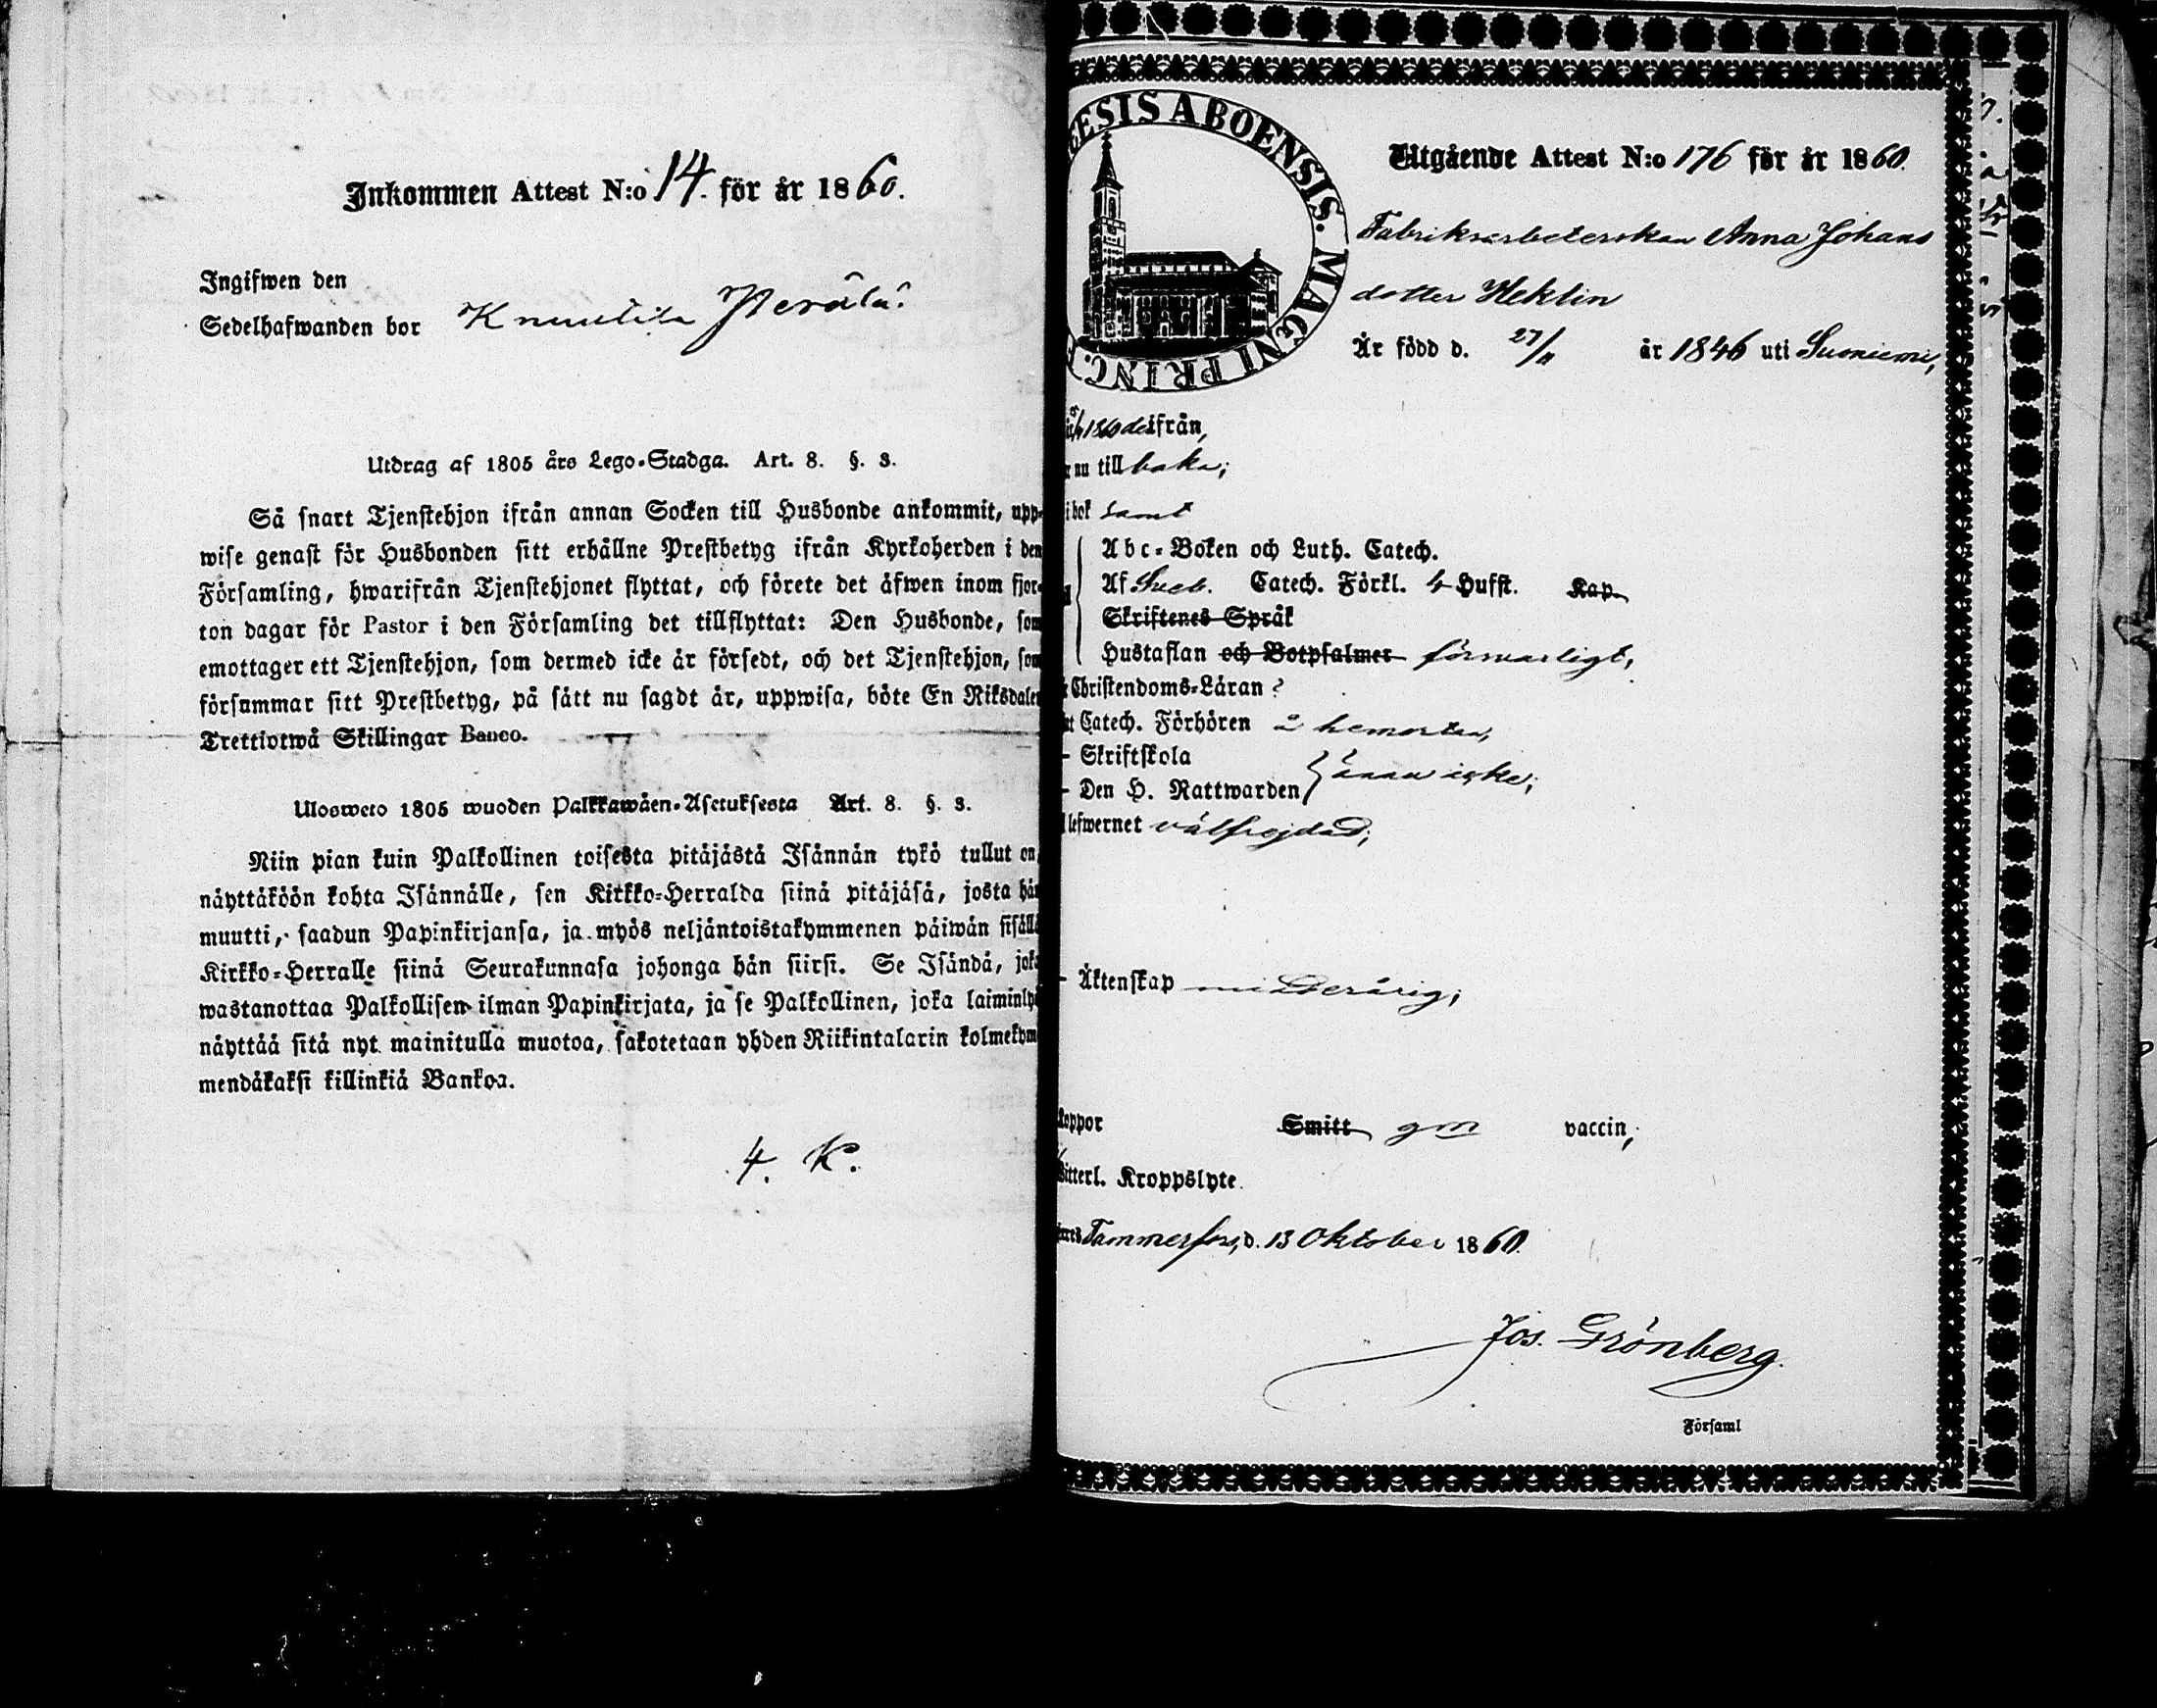 Inkommen Attest N:o 14. för år 1860.
Ingifwen den
Sedelhafwanden bor Knuutila Perälä.
Utdrag af 1805 års Lego-Stadga. Art. 8. §. 3.
Så snart Tjenstehjon ifrån annan Socken till Husbonde ankommit, upp-
wise genast för Husbonden sitt erhållne Prestbetyg ifrån Kyrkoherden i den
Församling, hwarifrån Tjenstehjonet flyttat, och förete det äfwen inom fjor-
ton dagar för Pastor i den Församling det tillflyttat: Den Husbonde, som
emottager ett Tjenstehjon, som dermed icke är försedt, och det Tjenstehjon, som
försummar sitt Prestbetyg, på sätt nu sagdt är, uppwisa, böte En Riksdaler
Trettiotwå Skillingar Banco.
Ulosweto 1805 wuoden Palkkawäen-Asetuksesta Art. 8. §. 3.
Niin pian kuin Palkollinen toisesta pitäjästä Isännän tykö tullut on,
näyttäköön kohta Isännälle, sen Kirkko-Herralda siinä pitäjäsä, josta hän
muutti, saadun Papinkirjansa, ja myös neljäntoistakymmenen päiwän sisällä
Kirkko-Herralle siinä Seurakunnasa johonga hän siirsi. Se Isändä, joka
wastanottaa Palkollisen ilman Papinkirjata, ja se Palkollinen, joka laiminlyö
näyttää sitä nyt mainitulla muotoa, sakotetaan yhden Riikintalarin kolmekym
mendäkaksi killinkiä Bankoa.
4. K.
ESIS ABOENSIS. MAGNI PRINC. F
Utgående Attest N:o 176 för år 1860.
Fabriksarbeterskan Anna Johans
dotter Heklin
Är född d. 27/11 år 1846 uti Suoniemi,
1860 derifrån,
nu tillbaka;
i bok samt
Abc-Boken och Luth. Catech.
Af Sveb. Catech. Förkl. 4 Hufst. Kap.
Skriftenes Språk
Hustaflan och Botpsalmer försvarligt,
Christendoms-Läran
Catech. Förhören
Skriftskola
Den H. Nattwarden
lefwernet välfrejdad;
Äktenskap minderårig;
koppor Smitt gm vaccin,
Witterl. Kroppslyte.
Tammerfors, d. 13 Oktober 1860.
Jos. Grönberg.
Församl